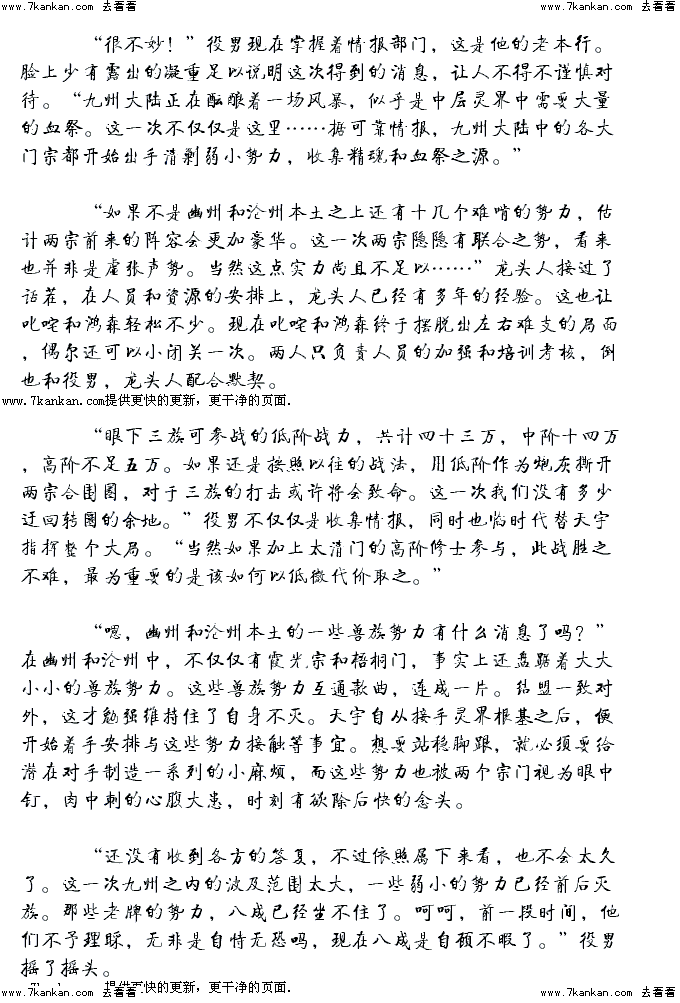 www.7kankan.com 去看看 www.7kankan.com 去看看 www.7kankan.com 去看看
“很不妙！”役男现在掌握着情报部门，这是他的老本行。
脸上少有露出的凝重足以说明这次得到的消息，让人不得不谨慎对
待。“九州大陆正在酝酿着一场风暴，似乎是中层灵界中需要大量
的血祭。这一次不仅仅是这里……据可靠情报，九州大陆中的各大
门宗都开始出手清剿弱小势力，收集精魂和血祭之源。”
“如果不是幽州和沧州本土之上还有十几个难啃的势力，估
计两宗前来的阵容会更加豪华。这一次两宗隐隐有联合之势，看来
也并非是虚张声势。当然这点实力尚且不足以……”龙头人接过了
话茬，在人员和资源的安排上，龙头人已经有多年的经验。这也让
叱咤和鸿森轻松不少。现在叱咤和鸿森终于摆脱出左右难支的局面
，偶尔还可以小闭关一次。两人只负责人员的加强和培训考核，倒
也和役男，龙头人配合默契。
www.7kankan.com提供更快的更新，更干净的页面.
“眼下三族可参战的低阶战力，共计四十三万，中阶十四万
，高阶不足五万。如果还是按照以往的战法，用低阶作为炮灰撕开
两宗合围圈，对于三族的打击或许将会致命。这一次我们没有多少
迂回转圜的余地。”役男不仅仅是收集情报，同时也临时代替天宇
指挥整个大局。“当然如果加上太清门的高阶修士参与，此战胜之
不难，最为重要的是该如何以低微代价取之。”
“嗯，幽州和沧州本土的一些兽族势力有什么消息了吗？”
在幽州和沧州中，不仅仅有霞光宗和梧桐门，事实上还盘踞着大大
小小的兽族势力。这些兽族势力互通款曲，连成一片。结盟一致对
外，这才勉强维持住了自身不灭。天宇自从接手灵界根基之后，便
开始着手安排与这些势力接触等事宜。想要站稳脚跟，就必须要给
潜在对手制造一系列的小麻烦，而这些势力也被两个宗门视为眼中
钉，肉中刺的心腹大患，时刻有欲除后快的念头。
“还没有收到各方的答复，不过依照属下来看，也不会太久
了。这一次九州之内的波及范围太大，一些弱小的势力已经前后灭
族。那些老牌的势力，八成已经坐不住了。呵呵，前一段时间，他
们不予理睬，无非是自恃无恐吗，现在八成是自顾不暇了。”役男
摇了摇头。
提供更快的更新，更干净的页面.
www.7kankan.com 去看看 www.7kankan.com 去看看 www.7kankan.com 去看看